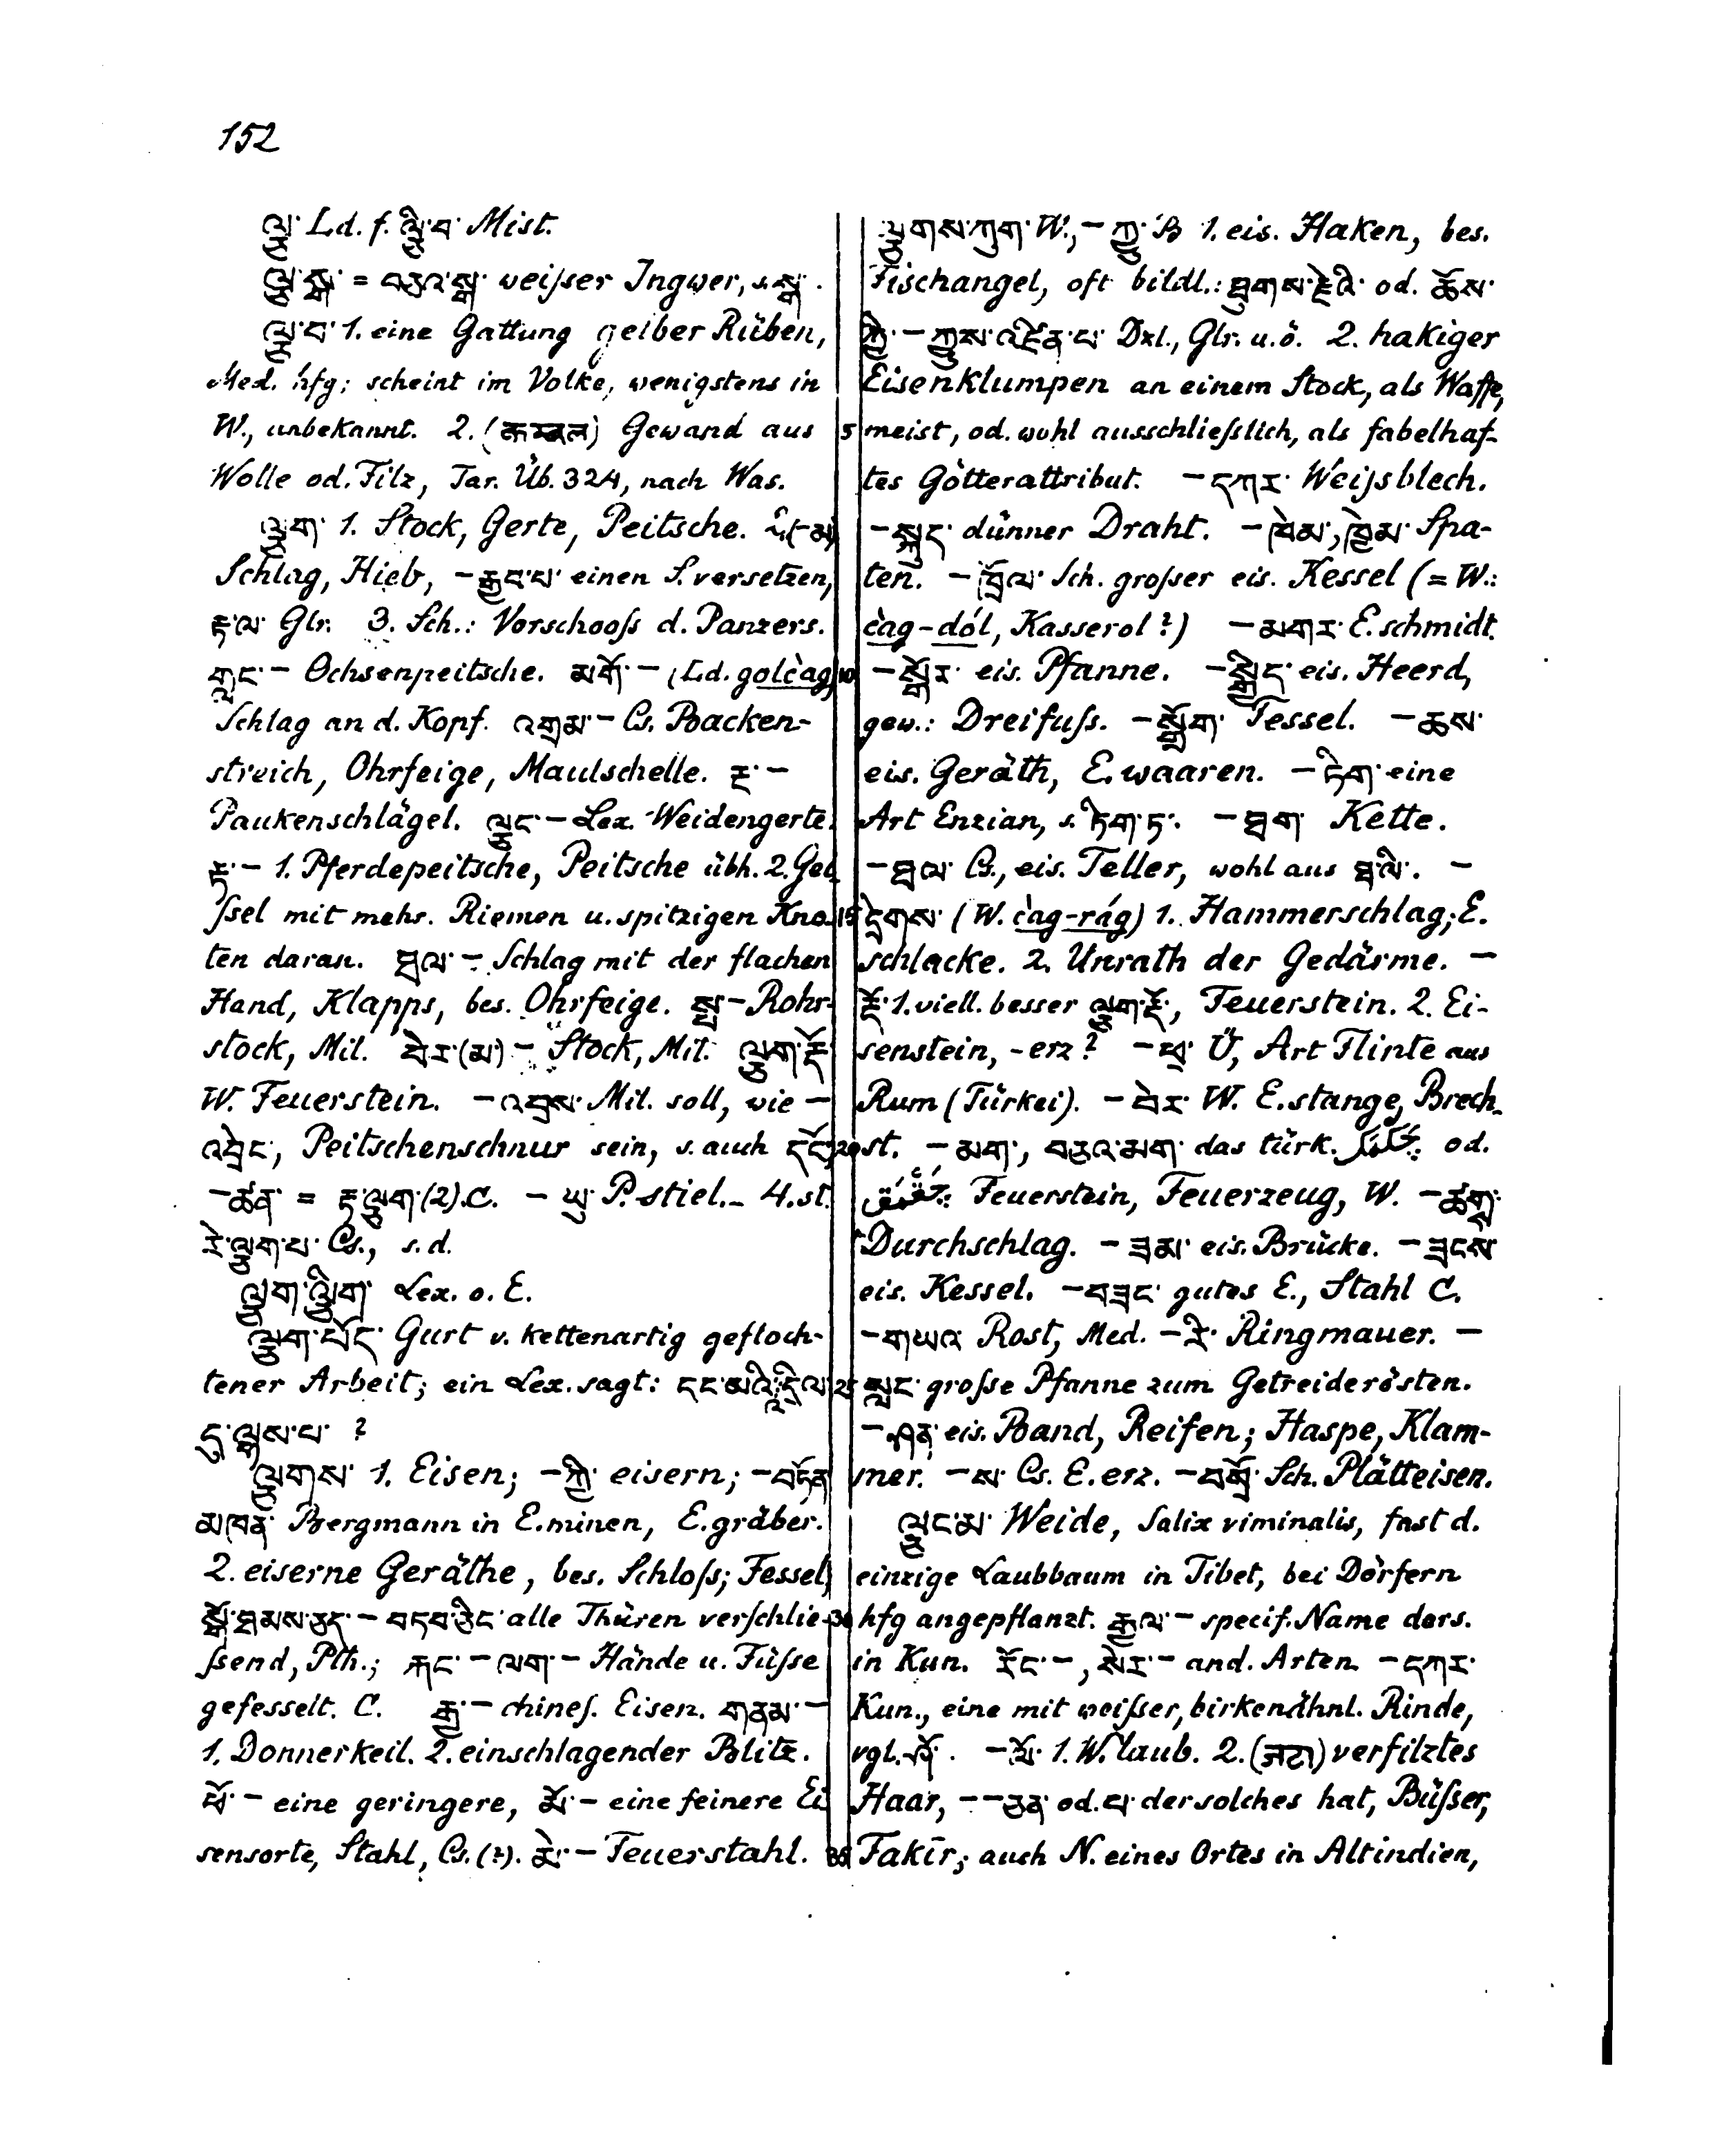 152
ལྕུ་ Ld. f. ལྕི་བ་ Mist.
ལྕྭ་སྒ་ = བཅའ་སྒ་ weiſser Ingwer, s. སྒ་.
ལྕྭ་བ་ 1. eine Gattung gelber Rüben,
Med. hfg; scheint im Volke, wenigstens in
W., unbekannt. 2. Gewand aus
Wolle od. Filz, Tar. Üb. 324, nach Was.
ལྕག་ 1. Stock, Gerte, Peitsche. 2. (-མ)
Schlag, Hieb, – རྒྱབ་པ་ einen S. versetzen,
Glr. 3. Sch.: Vorschooſs d. Panzers.
གླང་ – Ochsenpeitsche. མགོ་ – (Ld. golc̀ag)
Schlag an d. Kopf. འགྲམ་ – Cs. Backen-
streich, Ohrfeige, Maulschelle. རྔ་ –
Paukenschlägel. ལྕང་ – Lex. Weidengerte.
རྟ་ – 1. Pferdepeitsche, Peitsche übh. 2. Gei-
ſsel mit mehr. Riemen u. spitzigen Kno-
ten daran. ཐལ་ – Schlag mit der flachen
Hand, Klapps, bes. Ohrfeige. སྦ་ – Rohr-
stock, Mil. བེར་(མ་) – Stock, Mil. ལྕག་རྡོ་
W. Feuerstein. – འབྲས་ Mil. soll, wie –
འབྲེང་, Peitschenschnur sein, s. auch
– ཚན་ = རྟ་ལྕག་ (2). C. – ཡུ་ P.stiel. – 4. st.
རེ་ལྕག་པ་ Cs., s. d.
ལྕག་ལྕིག་ Lex. o. E.
ལྕག་པོད་ Gurt v. kettenartig gefloch-
tener Arbeit; ein Lex. sagt:
དུ་ལྷས་པ་ ?
ལྕགས་ 1. Eisen; – ཀྱི་ eisern; – བརྐོན
མཁན་ Bergmann in E.minen, E.gräber.
2. eiserne Geräthe, bes. Schloſs; Fessel,
སྒོ་ཐམས་ཅད་ – བཏབ་ཅིང་ alle Thüren verſchlie-
ſsend, Pth.; རྐང་ – ལག་ – Hände u. Füſse
gefesselt. C. རྒྱ་ – chineſ. Eisen. གནམ་ –
1. Donnerkeil. 2. einschlagender Blitz.
ཕོ་ – eine geringere, མོ་ – eine feinere Ei-
sensorte, Stahl, Cs. (?). མེ་ – Feuerstahl.
ལྕགས་ཀུག་ W., – ཀྱུ་ B 1. eis. Haken, bes.
Fischangel, oft bildl.: ཐུགས་རྗེའི་ od. ཆོས་
ཀྱི་ – ཀྱུས་འཛིན་པ་ Dzl., Glr. u. ö. 2. hakiger
Eisenklumpen an einem Stock, als Waffe,
5 meist, od. wohl ausschlieſslich, als fabelhaf-
tes Götterattribut. – དཀར་ Weiſsblech.
– སྐུད་ dünner Draht. – ཁེམ་, ཁྱེམ་ Spa-
ten. – ཁྲོལ་ Sch. groſser eis. Kessel (= W.:
c̀ag-dól, Kasserol?) – མགར་ E.schmidt.
10 – སྒོར་ eis. Pfanne. – སྒྱིད་ eis. Heerd,
gew.: Dreifuſs. – སྒྲོག་ Fessel. – ཆས་
eis. Geräth, E.waaren. – ཏིག་ eine
Art Enzian, s. ཏིག་ཏ་. – ཐག་ Kette.
– ཐལ་ Cs., eis. Teller, wohl aus ཐ་ལི་. –
15 དྲེགས་ (W. c̀ag-rág) 1. Hammerschlag, E.
schlacke. 2. Unrath der Gedärme. –
རྡོ་ 1. viell. besser ལྕག་རྡོ་, Feuerstein. 2. Ei-
senstein, -erz? – ཕྲ་ Ü, Art Flinte aus
Rum (Türkei). – བེར་ W. E.stange, Brech-
20 st. – མག་, བཅའ་མག་ das türk. od.
Feuerstein, Feuerzeug, W. – ཚགས་
Durchschlag. – ཟམ་ eis. Brücke. – ཟངས་
eis. Kessel. – བཟང་ gutes E., Stahl C.
– གཡའ་ Rost, Med. – རི་ Ringmauer. –
25 སླང་ groſse Pfanne zum Getreiderösten.
– ཤན་ eis. Band, Reifen; Haspe, Klam-
mer. – ས་ Cs. E.erz. – བསྲོ་ Sch. Plätteisen.
ལྕང་མ་ Weide, Salix viminalis, fast d.
einzige Laubbaum in Tibet, bei Dörfern
30 hfg angepflanzt. རྒྱལ་ – specif. Name ders.
in Kun. རོང་ –, སེར་ – and. Arten – དཀར་
Kun., eine mit weiſser, birkenähnl. Rinde,
vgl. – ལོ་ 1. W.laub. 2. (जटा) verfilztes
Haar, – – ཅན་ od. པ་ der solches hat, Büſser,
35 Fakīr; auch N. eines Ortes in Altindien,